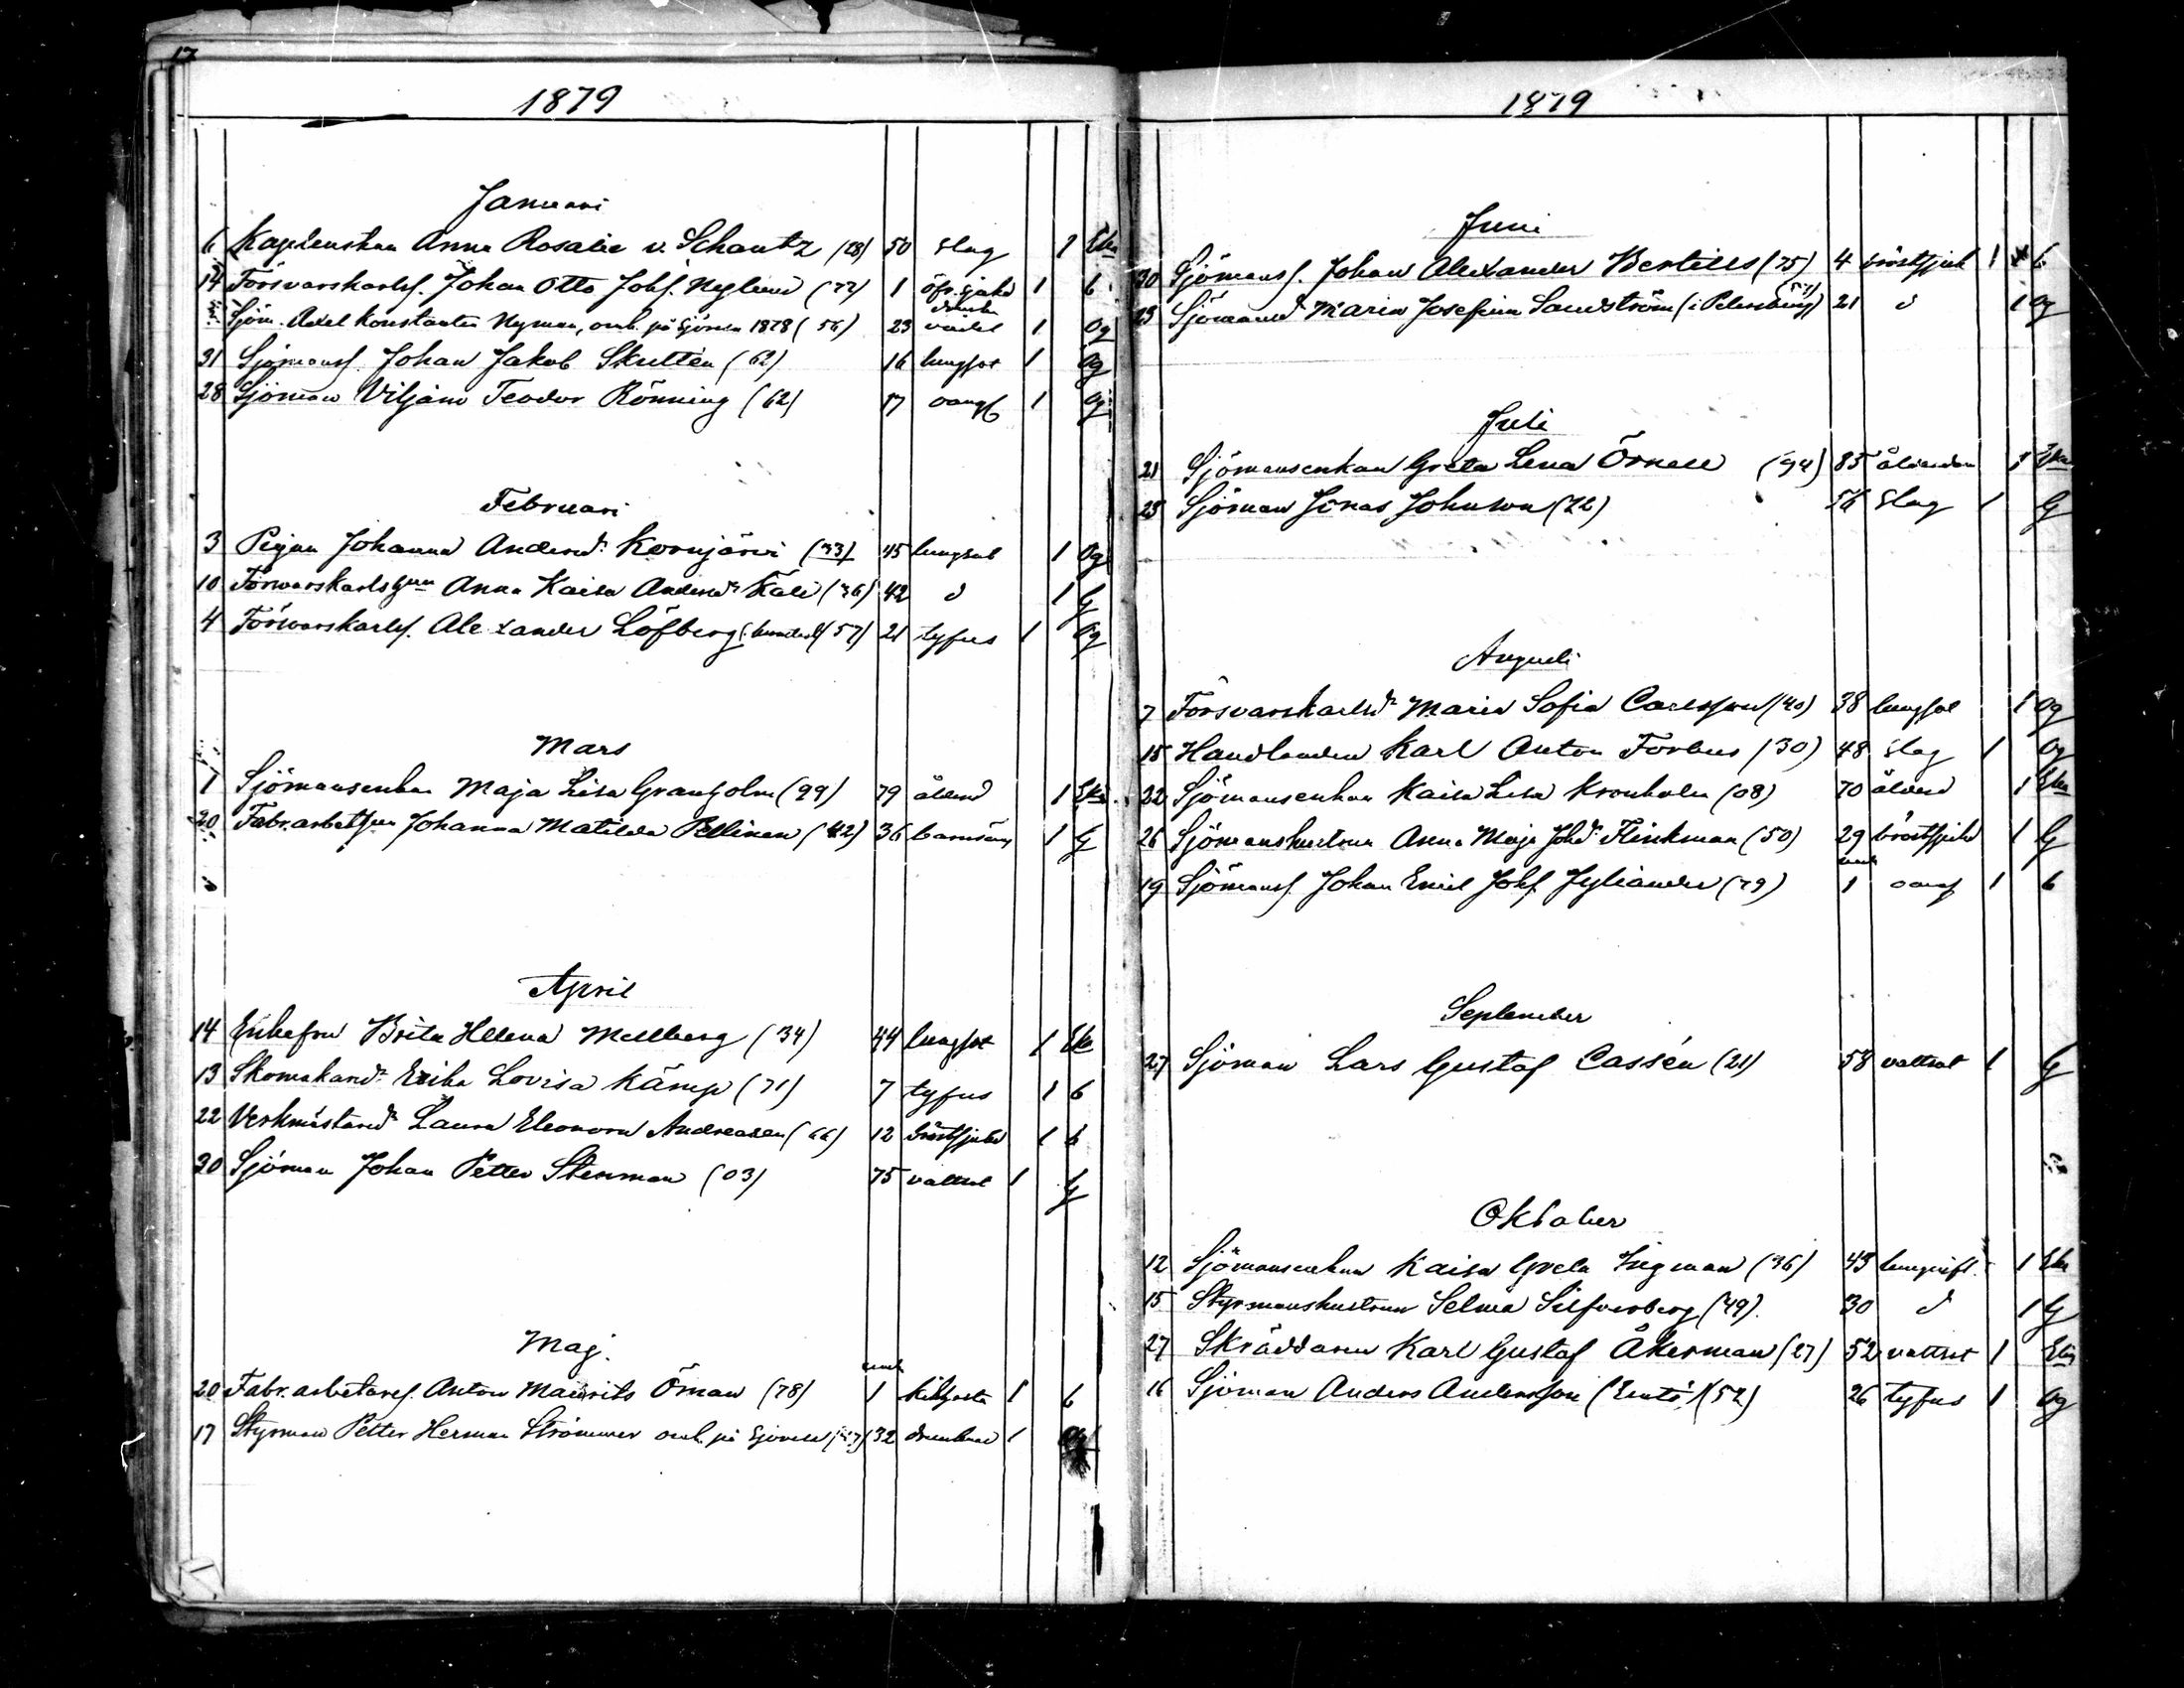 17
1879
Januari
6 Kaplenskan Anna Rosalie v. Schantz (28) 50 slag 1 Eka
14 Försvarskarlss. Johan Otto Johs. Nylund (77) 1 öfr. sjukd 1 b
Sjöm. Axel Konstantin Nyman, omk. på sjön 1878 (56) 23 1 Og
31 Sjömanss. Johan Jakob Skuttèn (62) 16 lungsot 1 Og
28 Sjöman Viljam Teodor Rönning (62) 17 oangf 1 Og
Februari
3 Pigan Johanna Andersdr Kornjärvi (33) 45 lungsot 1 Og
10 Försvarskarlshun Anna Kaisa Andersdr Käld (36) 42 d 1 G
4 Försvarskarlss. Alexander Löfberg (57) 21 tyfus 1 Og
Mars
1 Sjömansenkan Maja Lisa Granholm (99) 79 ålderd 1 Eka
20 Fabr.arbethun Johanna Matilda Pellinen (42) 36 barnsäng 1 G
April
14 Enkefru Brita Helena Mellberg (34) 44 lungsot 1 Eka
13 Skomakaredr Erika Lovisa Kämp (71) 7 tyfus 1 b
22 Verkmästaredr Laura Eleonora Andreasen (66) 12 bröstsjukd 1 b
20 Sjöman Johan Petter Stenman (03) 75 vattsot 1 G
Maj.
20 Fabr.arbetares. Anton Mauritz Öman (78) 1 kikhosta 1 b
17 Styrman Petter Herman Strömmer omk. på sjöresa (47) 32 drunknad 1
1879
Juni
30 Sjömanss. Johan Alexander Bertills (75) 4 bröstsjukd 1 b
23 Sjömansd Maria Josefina Sandström (i Petersburg) (57) 21 d 1 Og
Juli
21 Sjömansenkan Greta Lena Örnell (94) 85 ålderdom 1 Eka
23 Sjöman Jonas Johnson (22) 56 slag 1 G
Augusti
7 Försvarskarlsdr Maria Sofia Carlsson (40) 38 lungsot 1 Og
15 Handlanden Karl Anton Forbus (30) 48 slag 1 Og
22 Sjömansenkan Kaisa Lisa Kronholm (08) 70 ålderd 1 Eka
26 Sjömanshustrun Anna Maja Johdr Flinkman (50) 29 bröstsjukd 1 G
19 Sjömanss. Johan Emil Johs. Jyliander (79) 1 oangf 1 b
September
27 Sjöman Lars Gustaf Cassén (21) 58 vattsot 1 G
Oktober
12 Sjömansenkan Kaisa Greta Ingman (36) 43 lunginfl. 1 Eka
15 Styrmanshustrun Selma Silfverberg (49) 30 d 1 G
27 Skräddaren Karl Gustaf Åkerman (27) 52 vattsot 1
16 Sjöman Anders Andersson (Emtö) (52) 26 tyfus 1 Og